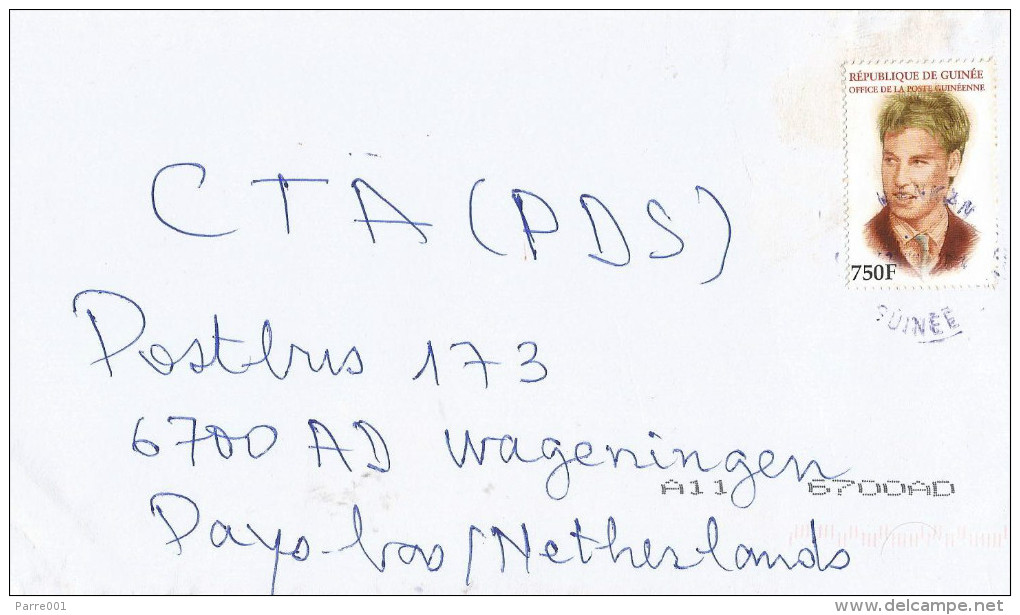 RÉPUBLIQUE DE GUINÉE
OFFICE DE LA POSTE GUINÉENNE
750F
GUINÉE
CTA (PDS)
Postbus 173
6700 AD Wageningen
A11 6700AD
Pays-bas/Netherlands
Parre001
delcampe.net